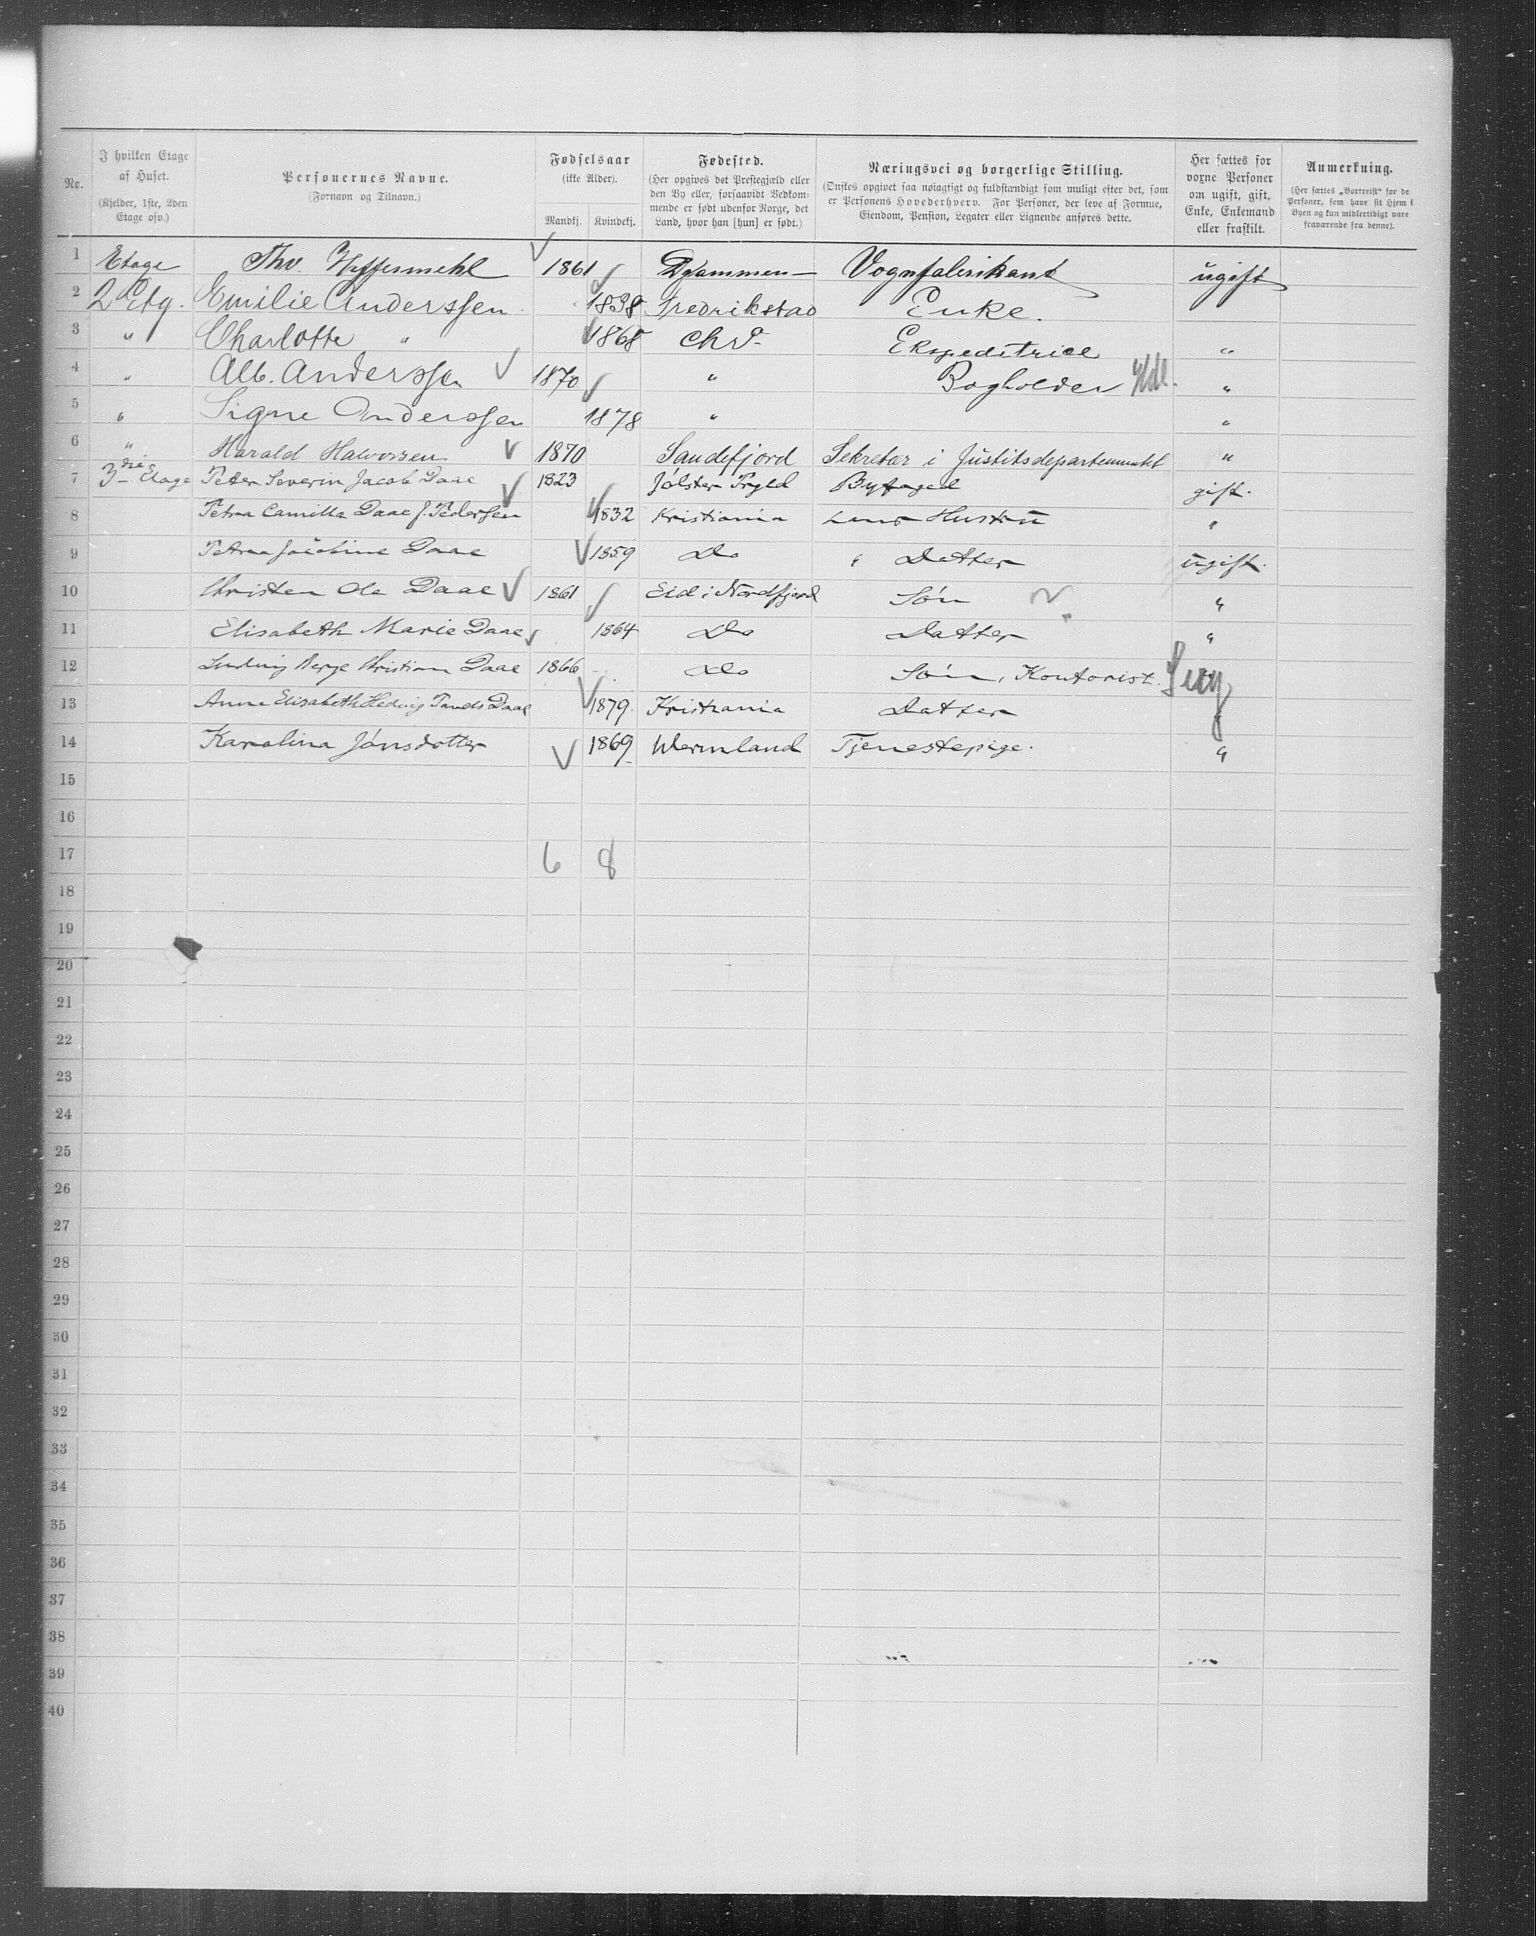 No.
I hvilken Etage af Huset.
(Kjelder, 1ste, 2den Etage osv.)
Personernes Navne.
(Fornavn og Tilnavn.)
Fødselsaar
(ikke Alder).
Mandkj. Kvindekj.
Fødested.
(Her opgives det Prestegjæld eller den By eller, forsaavidt Vedkommende er født udenfor Norge, det Land, hvor han [hun] er født.)
Næringsvei og borgerlige Stilling.
(Ønskes opgivet saa nøiagtigt og fuldstændigt som muligt efter det, som er Personens Hovederhverv. For Personer, der leve af Formue, Eiendom, Pension, Legater eller Lignende anføres dette.
Her sættes for voxne Personer om ugift, gift, Enke, Enkemand eller fraskilt.
Anmerkning.
(Her sættes „Bortreist“ for de Personer, som have sit Hjem i Byen og kun midlertidigt vare fraværende fra denne).
1 Etage Thv. Heffermehl 1861 Drammen Vognfabrikant ugift
2 2 Etg. Emilie Anderssen 1838 Fredrikstad Enke.
3 " Charlotte " 1868 Chr. Ekspeditrice "
4 " Alb. Anderssen 1870 " Bogholder Hdl. "
5 " Signe Anderssen 1878 " "
6 " Harald Halvorsen 1870 Sandefjord Sekretær i Justitsdepartementet "
7 3die Etage Peter Severin Jacob Daae 1823 Jølster Prgld Byfoged gift.
8 Petra Camilla Daae f. Pedersen 1832 Kristiania hans Hustru "
9 Petra Jacobine Daae 1859 Do " Datter ugift.
10 Christen Ole Daae 1861 Eid i Nordfjord Søn "
11 Elisabeth Marie Daae 1864 Do Datter "
12 Ludvig Berge Christian Daae 1866 Do Søn, Kontorist.
13 Anna Elisabeth Hedvig Daae 1879. Kristiania Datter "
14 Karolina Jónsdotter 1869 Wermland Tjenestepige. "
15
16
17 6 8
18
19
20
21
22
23
24
25
26
27
28
29
30
31
32
33
34
35
36
37
38
39
40